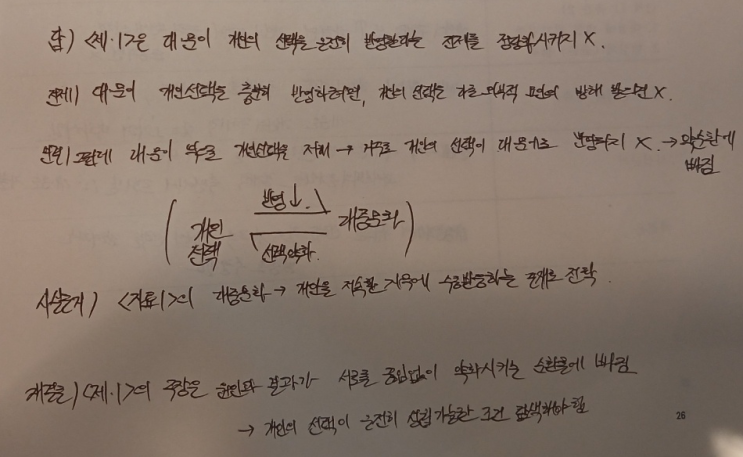 답) <제.1>은 대문이 개인의 선택을 온전히 반영한다는 전제를 정당화시키지 X.
전제) 대문이 개인선택을 충분히 반영하려면, 개인의 선택은 다른 외식적 요인의 방해 받으면 X.
반면) 그런데 대문이 부분 개인선택을 저해 → 거꾸로 개인의 선택이 대문에로 반영되지 X. → 악순환에 빠짐
개인 선택 반영↓. 선택약화. 대중문화
사실근거) <자료1>의 대중문화 → 개인을 지속할 자극에 수동반응하는 존재로 전락.
재결론) <제.1>의 주장은 원인과 결과가 서로를 끊임없이 약화시키는 순환론에 빠짐
→ 개인의 선택이 온전히 성립가능한 조건 탐색해야 함
26